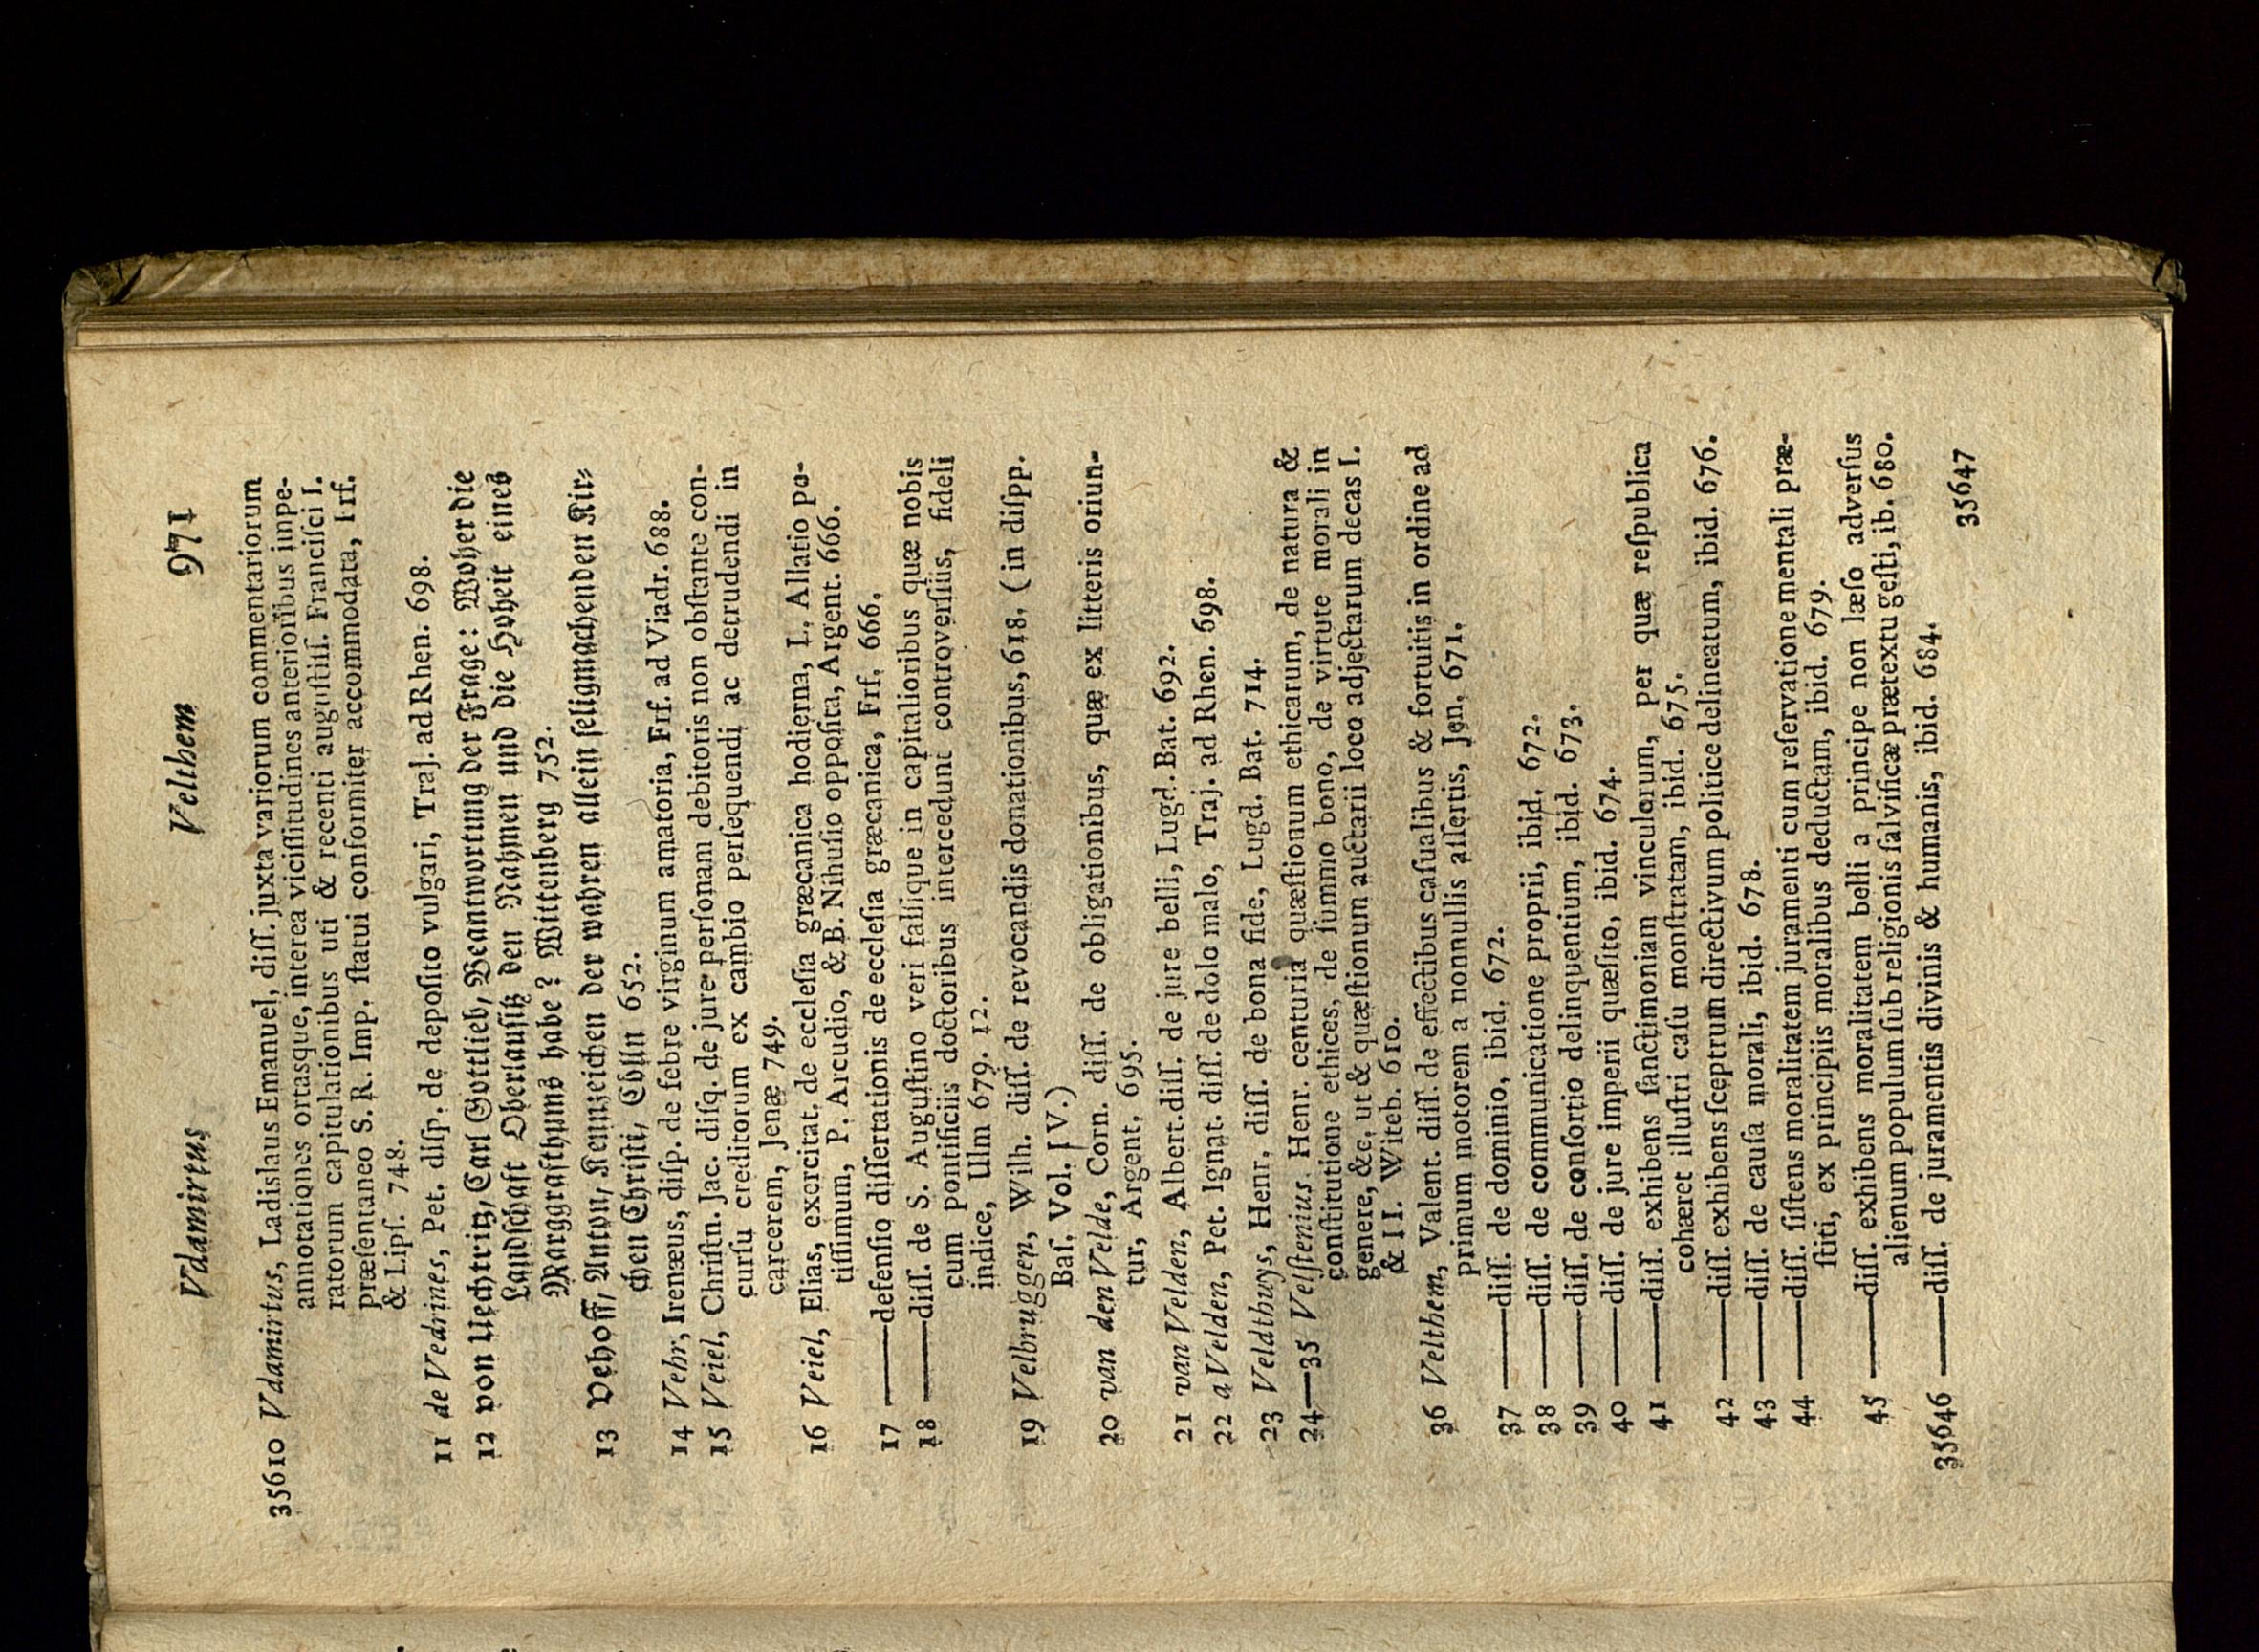 Vdamirtus Velthem 971
35610 Vdamirtus, Ladislaus Emanuel, diſſ. juxta variorum commentariorum
annotationes ortasque, interea viciſſitudines anterioribus inpe-
ratorum capitulationibus uti & recenti auguſtiſſ. Franciſci I.
præſentaneo S. R. Imp. ſtatui conformiter accommodata, Frf.
& Lipſ. 748.
11 de Vedrines, Pet. diſp. de depoſito vulgari, Traj. ad Rhen. 698.
12 von Uechtritz, Carl Gottlieb, Beantwortung der Frage: Woher die
Landſchaft Oberlauſitz den Nahmen und die Hoheit eines
Marggrafthums habe? Wittenberg 752.
13 Vehoff, Anton, Kennzeichen der wahren allein ſeligmachenden Kir-
chen Chriſti, Cölln 652.
14 Vehr, Irenæus, diſp. de febre virginum amatoria, Frf. ad Viadr. 688.
15 Veiel, Chriſtn. Jac. diſq. de jure perſonam debitoris non obſtante con-
curſu creditorum ex cambio perſequendi ac detrudendi in
carcerem, Jenæ 749.
16 Veiel, Elias, exercitat. de eccleſia græcanica hodierna, L. Allatio po-
tiſſimum, P. Arcudio, & B. Nihuſio oppoſita, Argent. 666.
17 —— defenſio diſſertationis de eccleſia græcanica, Frf. 666.
18 —— diſſ. de S. Auguſtino veri falſique in capitalioribus quæ nobis
cum pontificiis doctoribus intercedunt controverſiis, fideli
indice, Ulm 679. 12.
19 Velbruggen, Wilh. diſſ. de revocandis donationibus, 618. (in diſpp.
Baſ. Vol. IV.)
20 van den Velde, Corn. diſſ. de obligationibus, quæ ex litteris oriun-
tur, Argent. 695.
21 van Velden, Albert. diſſ. de jure belli, Lugd. Bat. 692.
22 a Velden, Pet. Ignat. diſſ. de dolo malo, Traj. ad Rhen. 698.
23 Veldthuys, Henr. diſſ. de bona fide, Lugd. Bat. 714.
24—35 Velſtenius. Henr. centuria quæſtionum ethicarum, de natura &
conſtitutione ethices, de ſummo bono, de virtute morali in
genere, &c. ut & quæſtionum auctarii loco adjectarum decas I.
& II. Witeb. 610.
36 Velthem, Valent. diſſ. de effectibus caſualibus & fortuitis in ordine ad
primum motorem a nonnullis aſſertis, Jen. 671.
37 —— diſſ. de dominio, ibid. 672.
38 —— diſſ. de communicatione proprii, ibid. 672.
39 —— diſſ. de conſortio delinquentium, ibid. 673.
40 —— diſſ. de jure imperii quæſito, ibid. 674.
41 —— diſſ. exhibens ſanctimoniam vinculorum, per quæ reſpublica
cohæret illuſtri caſu monſtratam, ibid. 675.
42 —— diſſ. exhibens ſceptrum directivum politice delineatum, ibid. 676.
43 —— diſſ. de cauſa morali, ibid. 678.
44 —— diſſ. ſiſtens moralitatem juramenti cum reſervatione mentali præ-
ſtiti, ex principiis moralibus deductam, ibid. 679.
45 —— diſſ. exhibens moralitatem belli a principe non læſo adverſus
alienum populum ſub religionis ſalvificæ prætextu geſti, ib. 680.
35646 —— diſſ. de juramentis divinis & humanis, ibid. 684.
35647